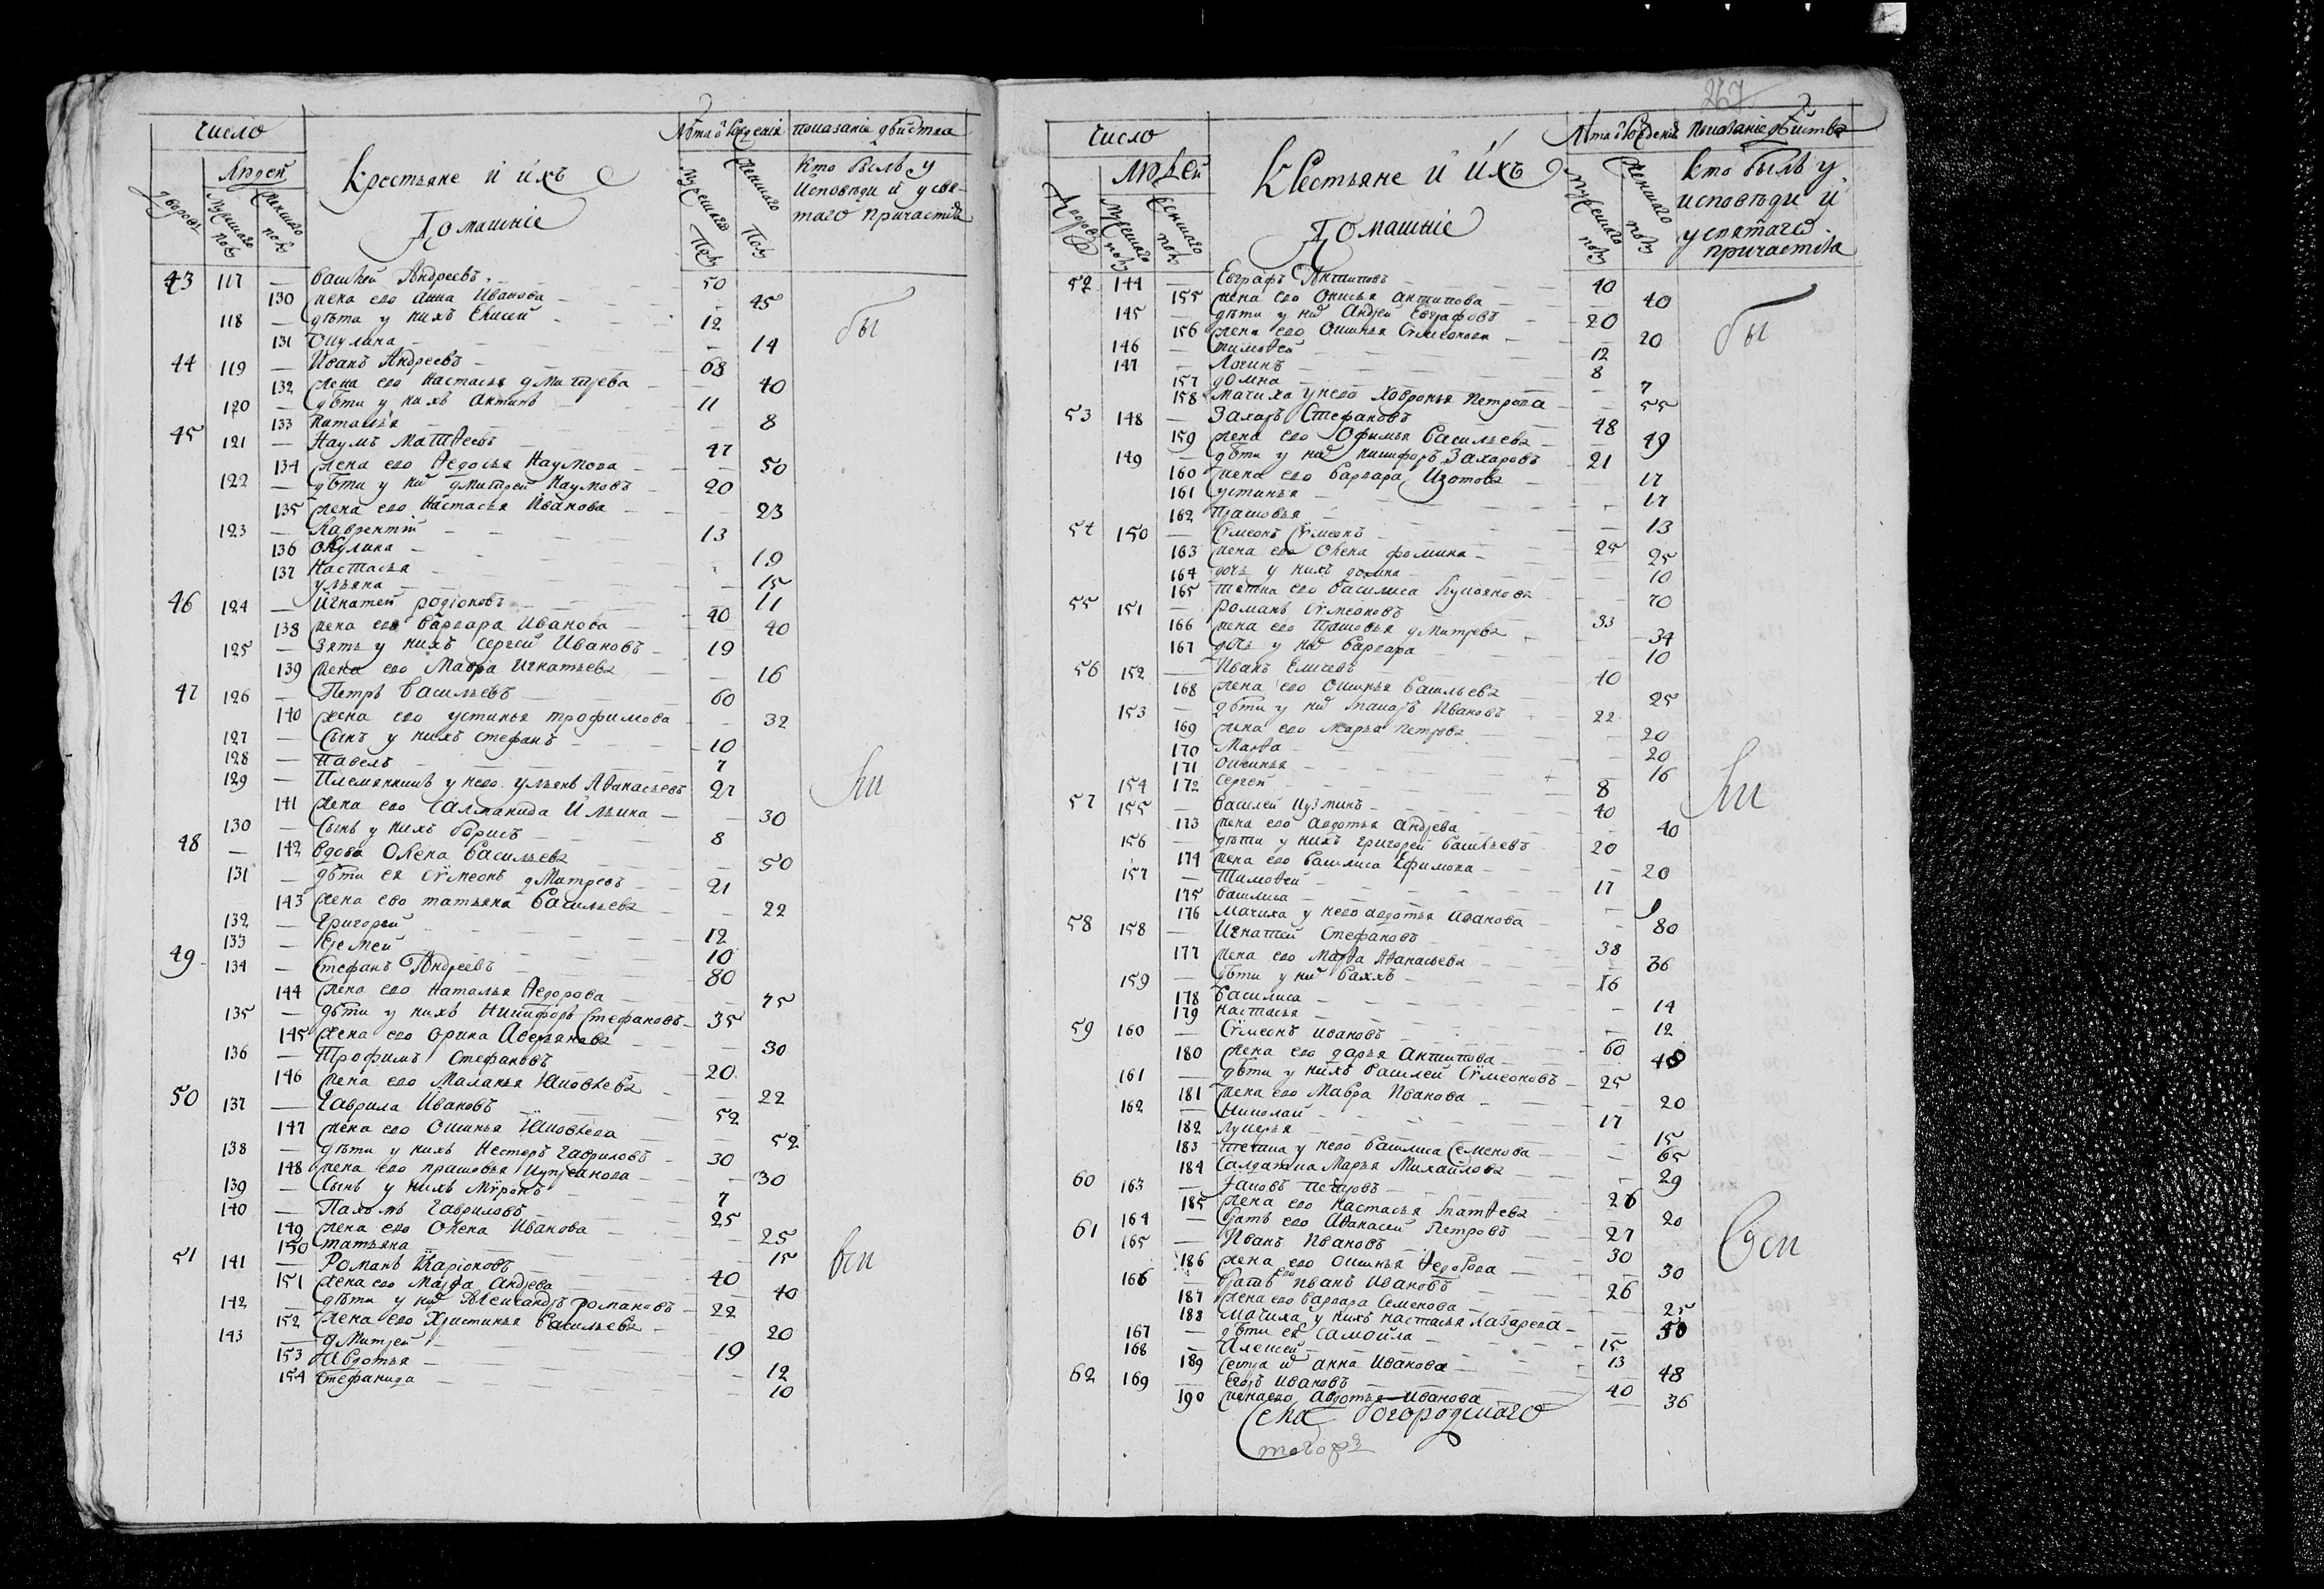 число
Людей
дворовъ
мужеска полу
женскаго полу
Крестьяне и ихъ
Домашніе
Лѣта ѿ рожденія
мужеска полу
женскаго полу
показаніе дѣйства
кто былъ у
исповѣди и у свя-
таго причастія
43 117 — Василей Андреевъ 50
130 жена его Анна Иванова 45
118 — дѣти у нихъ Елисей 12
131 Окулина 14
44 119 — Иванъ Андреевъ 68
132 жена его Настасья дмитрева 40
120 — дѣти у нихъ Антипъ 11
133 Наталья 8
45 121 — Наумъ Матвеевъ 47
134 жена его Ѳедосья Наумова 50
122 — дѣти у ни дмитрей Наумовъ 20
135 жена его Настасья Иванова 23
123 — Лаврентій 13
136 окулина 19
137 Настасья 15
ульяна 11
46 124 — Игнатей родіоновъ 40
138 жена его варвара Иванова 40
125 — зять у нихъ Сергей Ивановъ 19
139 жена его Мавра Игнатьева 16
47 126 — Петръ васильевъ 60
140 жена его устинья трофимова 32
127 — Сынъ у нихъ стефанъ 10
128 — павелъ 7
129 — Племянникъ у него ульянъ Аѳанасьевъ 27
141 жена его Саламанида Ильина 30
130 — Сынъ у нихъ борисъ 8
48 — 142 вдова Оѯена васильева 50
131 — дѣти ея Сѵмеонъ дмитревъ 21
143 жена его татьяна васильева 22
132 — Григорей 12
133 — Еремей 10
49 134 — Стефанъ Андреевъ 80
144 жена его наталья Ѳедорова 75
135 — дѣти у нихъ Никифоръ Стефановъ 35
145 жена его орина Аверьянова 30
136 — Трофимъ Стефановъ 20
146 жена его Маланья Яковлева 22
50 137 — Гаврила Ивановъ 52
147 жена его Оксинья Яковлева 52
138 — дѣти у нихъ Нестеръ Гавриловъ 30
148 жена его прасковья Купреанова 30
139 — Сынъ у нихъ Мѵронъ 7
140 — Пахомъ Гавриловъ 25
149 жена его Оѯена Иванова 25
150 татьяна 15
51 141 — Романъ Иларіоновъ 40
151 жена его Марѳа Андрева 40
142 — дѣти у ни Алеѯандръ романовъ 22
152 жена его Христинья васильева 20
143 — дмитрей 19
153 Авдотья 12
154 Стефанида 10
бы
ли
вси
267
число
людей
дворовъ
мужескаго полу
женскаго полу
Крестьяне и ихъ
Домашніе
Лѣта ѿ рожденія
мужескаго полу
женскаго полу
Показаніе дѣйства
кто былъ у
исповѣди и
у святаго
причастія
52 144 — Евграфъ Антиповъ 40
155 жена его Онисья антипова 40
145 — дѣти у ни Андрей Евграфовъ 20
156 жена его Оксинья Сѵмеонова 20
146 — тимоѳей 12
147 — Логинъ 8
157 домна 7
158 Мачиха у него Ховронья петрова 55
53 148 — Захаръ Стефановъ 48
159 жена его Офимья васильева 49
149 — дѣти у ни никифоръ Захаровъ 21
160 жена его варвара Изотова 17
161 устинья 17
162 прасковья 13
54 150 — Сѵмеонъ Сѵмеонъ 25
163 жена его Оѯена фомина 25
164 дочь у нихъ домна 10
165 тетка его василиса 70
55 151 — романъ Сѵмеоновъ 33
166 жена его прасковья дмитрева 34
167 дочь у ни варвара 10
56 152 — Иванъ Елисевъ 40
168 жена его Оксинья васильева 25
153 — дѣти у ни макаръ Ивановъ 22
169 жена его марья петрова 20
170 Марѳа 20
171 Оксинья 16
154 172 Сергей 8
57 155 — василей кузминъ 40
173 жена его авдотья андрева 40
156 — дѣти у нихъ григорей васильевъ 20
174 жена его василиса Ефимова 20
157 — Тимоѳей 17
175 василиса 9
176 Мачиха у него авдотья Иванова 80
58 158 — Игнатей Стефановъ 38
177 жена его Марѳа Аѳанасьева 36
159 — дѣти у ни вакхъ 16
178 василиса 14
179 настасья 12
59 160 — Сѵмеонъ ивановъ 60
180 жена его дарья антипова 48
161 — дѣти у нихъ василей Сѵмеоновъ 25
181 жена его Мавра Иванова 20
162 — николай 17
182 лукерья 15
183 тетка у него василиса Семенова 65
184 Салдатка Марья Михайлова 29
60 163 — Яковъ петровъ 26
185 жена его настасья матвева 20
164 — братъ его Аѳанасей Петровъ 27
61 165 — Иванъ Ивановъ 30
186 жена его оксинья Ѳедорова 30
166 — братъ его иванъ Ивановъ 26
187 жена его варвара Семенова 25
188 мачиха у нихъ настасья лазарева 50
167 — дѣти ея самойла 15
168 — Алексей 13
189 Сестра и анна Иванова 48
62 169 — Егоръ ивановъ 40
190 жена его авдотья Иванова 36
бы
ли
вси
Села богородскаго